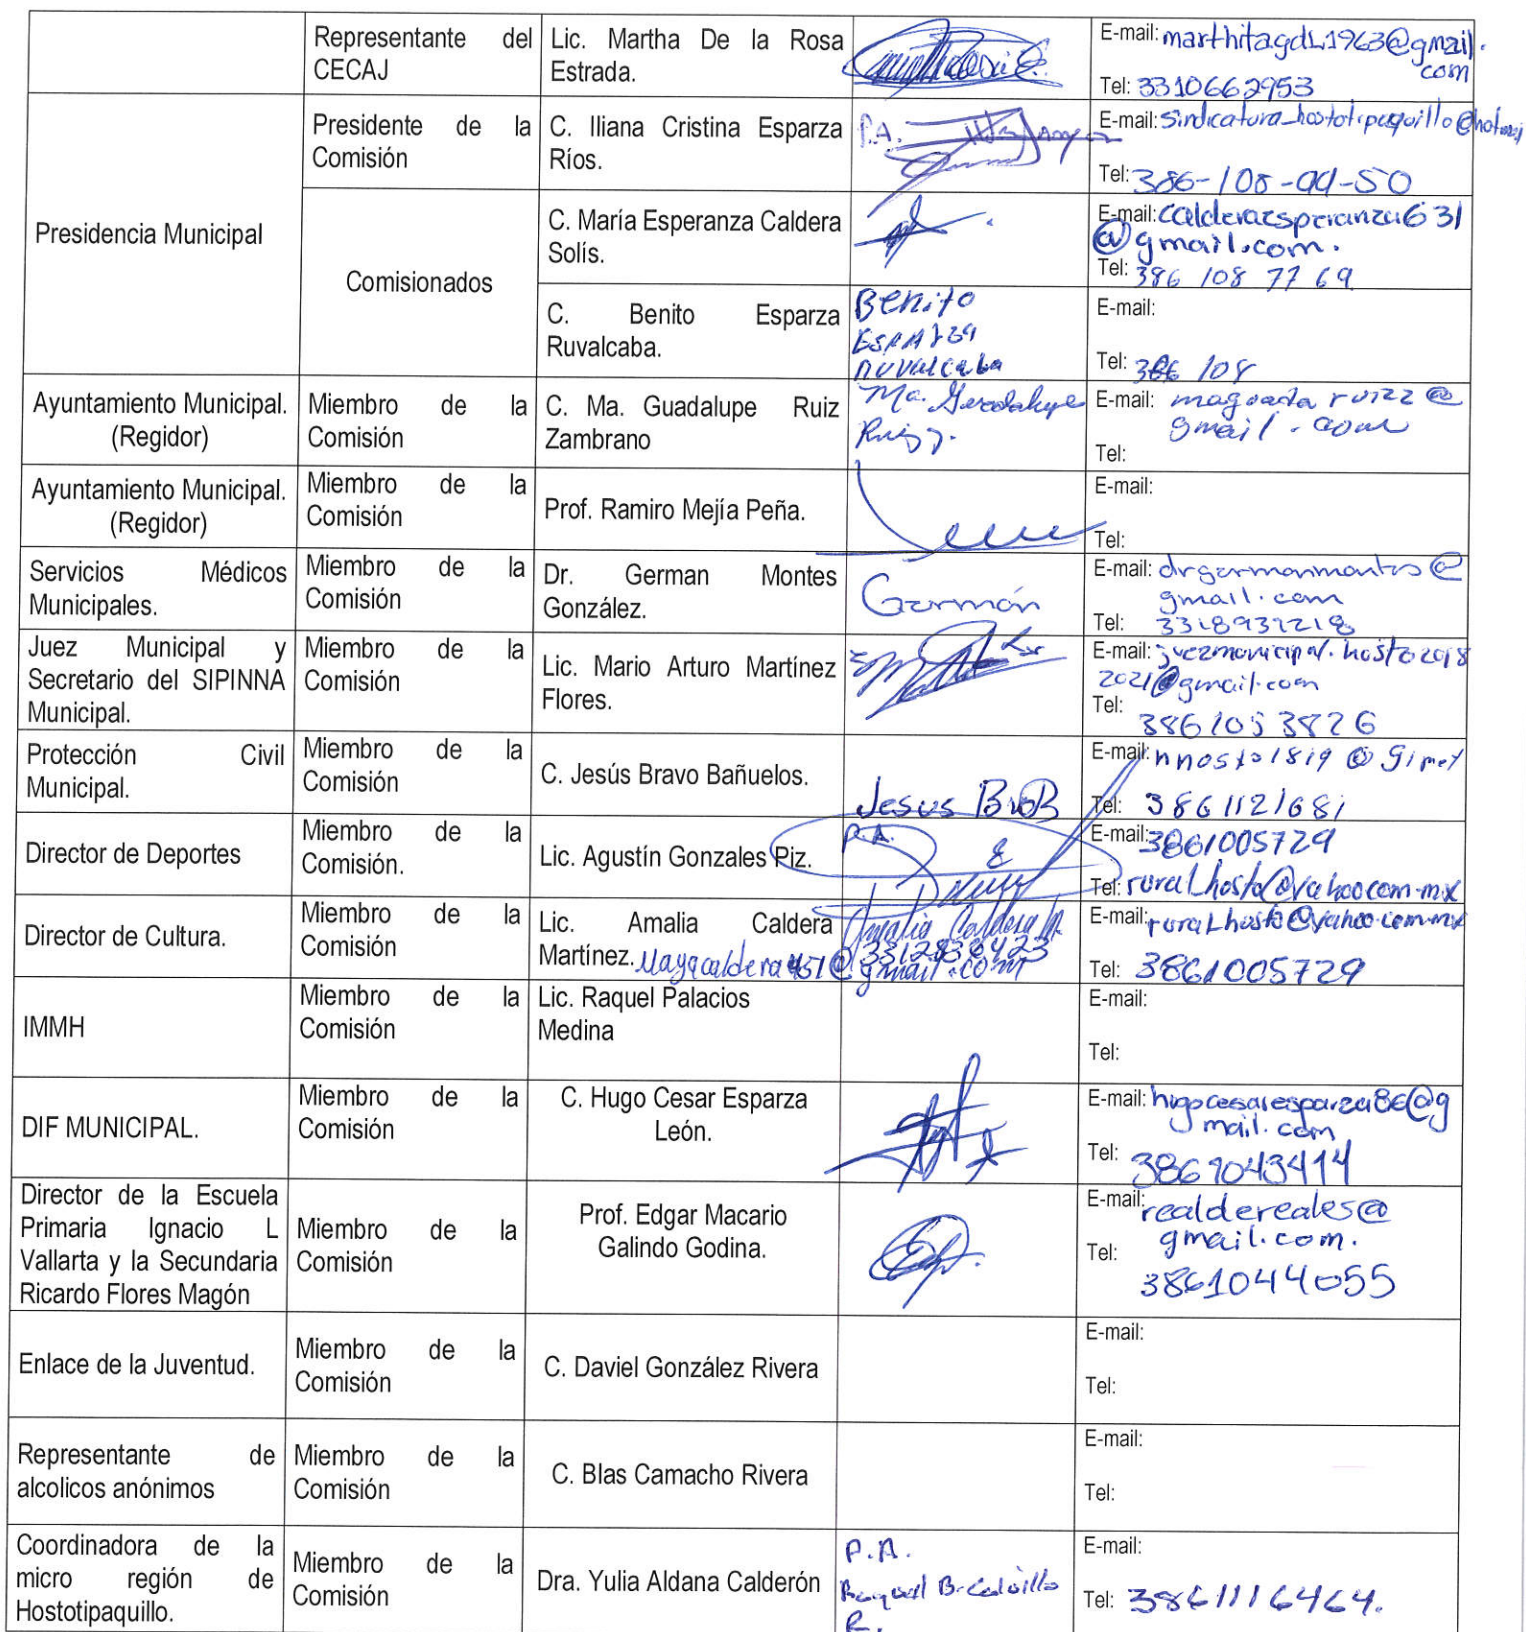 Representante del CECAJ
Lic. Martha De la Rosa Estrada.
E-mail: marthitagdL1963@gmail.com
Tel: 3310662953
Presidencia Municipal
Presidente de la Comisión
C. Iliana Cristina Esparza Ríos.
P.A.
E-mail: Sindicatura_hostotipaquillo@
Tel: 386-108-
Comisionados
C. María Esperanza Caldera Solís.
E-mail: calderaesperanza631
@gmail.com.
Tel: 386 108 77 69
C. Benito Esparza Ruvalcaba.
Benito
Ruvalcaba
E-mail:
Tel: 386 108
Ayuntamiento Municipal.
(Regidor)
Miembro de la Comisión
C. Ma. Guadalupe Ruiz Zambrano
Ma. Guadalupe
Ruiz Z.
E-mail:
gmail.com
Tel:
Ayuntamiento Municipal.
(Regidor)
Miembro de la Comisión
Prof. Ramiro Mejía Peña.
E-mail:
Tel:
Servicios Médicos Municipales.
Miembro de la Comisión
Dr. German Montes González.
Germán
E-mail: drgermanmontes@
gmail.com
Tel: 3318931218
Juez Municipal y Secretario del SIPINNA Municipal.
Miembro de la Comisión
Lic. Mario Arturo Martínez Flores.
E-mail: juezmunicipal.hosto2018
2021@gmail.com
Tel:
3861053826
Protección Civil Municipal.
Miembro de la Comisión
C. Jesús Bravo Bañuelos.
Jesus
E-mail:
Tel: 3861121681
Director de Deportes
Miembro de la Comisión.
Lic. Agustín Gonzales Piz.
P.A.
E-mail: 3861005729
Tel: ruralhosto@yahoo.com.mx
Director de Cultura.
Miembro de la Comisión
Lic. Amalia Caldera Martínez.
Amalia Caldera M.
3312836423
Mayacaldera451@gmail.com
E-mail: ruralhosto@yahoo.com.mx
Tel: 3861005729
IMMH
Miembro de la Comisión
Lic. Raquel Palacios Medina
E-mail:
Tel:
DIF MUNICIPAL.
Miembro de la Comisión
C. Hugo Cesar Esparza León.
E-mail: hugocesaresparza86@g
mail.com
Tel: 3861043414
Director de la Escuela Primaria Ignacio L Vallarta y la Secundaria Ricardo Flores Magón
Miembro de la Comisión
Prof. Edgar Macario Galindo Godina.
E-mail: realdereales@
gmail.com.
Tel:
3861044055
Enlace de la Juventud.
Miembro de la Comisión
C. Daviel González Rivera
E-mail:
Tel:
Representante de alcolicos anónimos
Miembro de la Comisión
C. Blas Camacho Rivera
E-mail:
Tel:
Coordinadora de la micro región de Hostotipaquillo.
Miembro de la Comisión
Dra. Yulia Aldana Calderón
P.A.
R.
E-mail:
Tel: 3861116464.